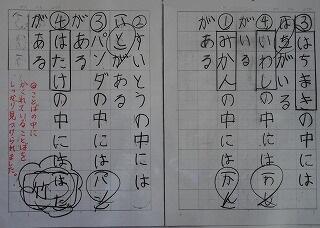 ③はちまきの中には
がいる
④いわしの中にはわし
がいる
①みかんの中にはかん
がある
②すいとうの中には
とがある
③パンダの中にはパン
がある
④はたけの中にははた
◎ことばの中に
かくれていることばを
しっかり見つけられました。
竹